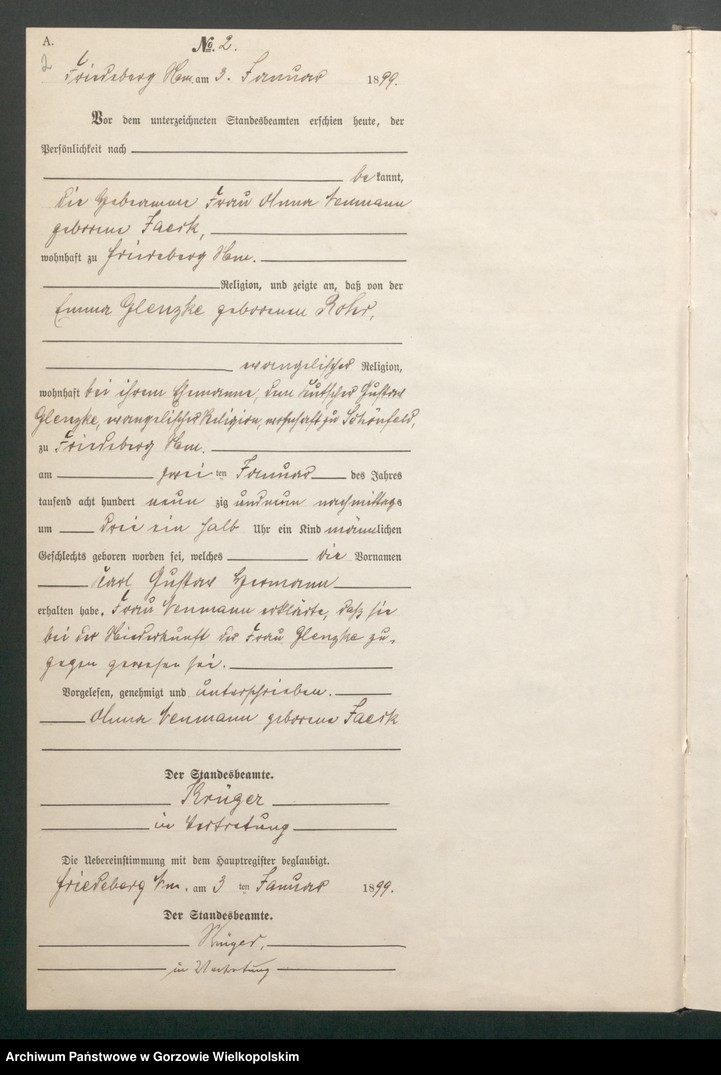 A.
№ 2.
2
Friedeberg Nm. am 3. Januar 1899.
Vor dem unterzeichneten Standesbeamten erschien heute, der
Persönlichkeit nach
bekannt,
die Hebeamme Frau Anna Neumann
geborene Jaeck,
wohnhaft zu Friedeberg Nm.
Religion, und zeigte an, daß von der
Emma Glenzke geborenen Rohr,
evangelischer Religion,
wohnhaft bei ihrem Ehemanne, dem Kutscher Gustav
Glenzke, evangelischer Religion, wohnhaft zu Schönfeld,
zu Friedeberg Nm.
am zwei ten Januar des Jahres
tausend acht hundert neun zig und neun nachmittags
um drei ein halb Uhr ein Kind männlichen
Geschlechts geboren worden sei, welches die Vornamen
Carl Gustav Hermann
erhalten habe. Frau Neumann erklärte, daß sie
bei der Niederkunft der Frau Glenzke zu-
gegen gewesen sei.
Vorgelesen, genehmigt und unterschrieben.
Anna Neumann geborene Jaeck
Der Standesbeamte.
Krüger
in Vertretung
Die Uebereinstimmung mit dem Hauptregister beglaubigt.
Friedeberg Nm., am 3 ten Januar 1899.
Der Standesbeamte.
Krüger,
in Vertretung
Archiwum Państwowe w Gorzowie Wielkopolskim